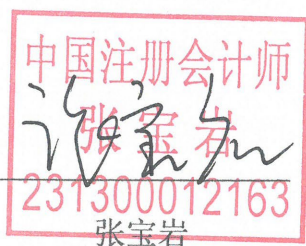 中国注册会计师
张宝岩
231300012163
张宝岩